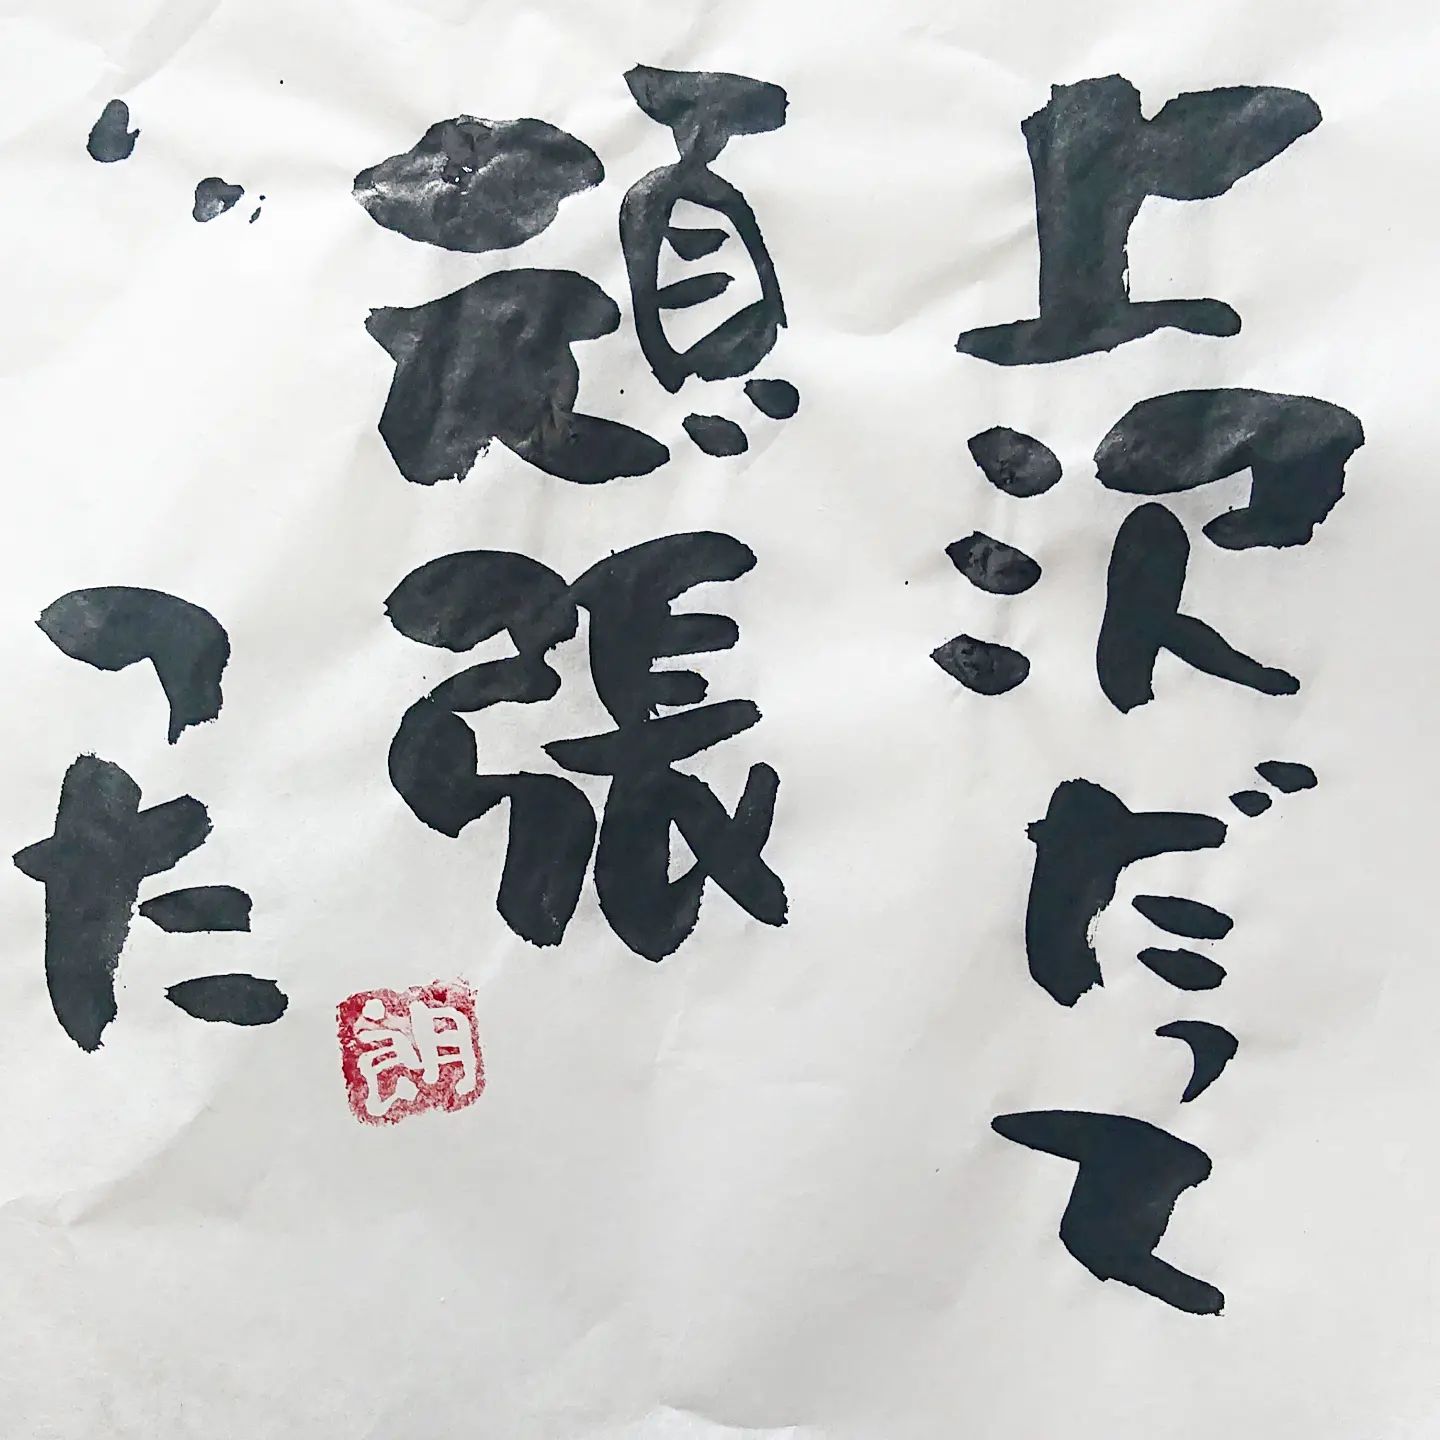 上沢だって
頑張
った
朗